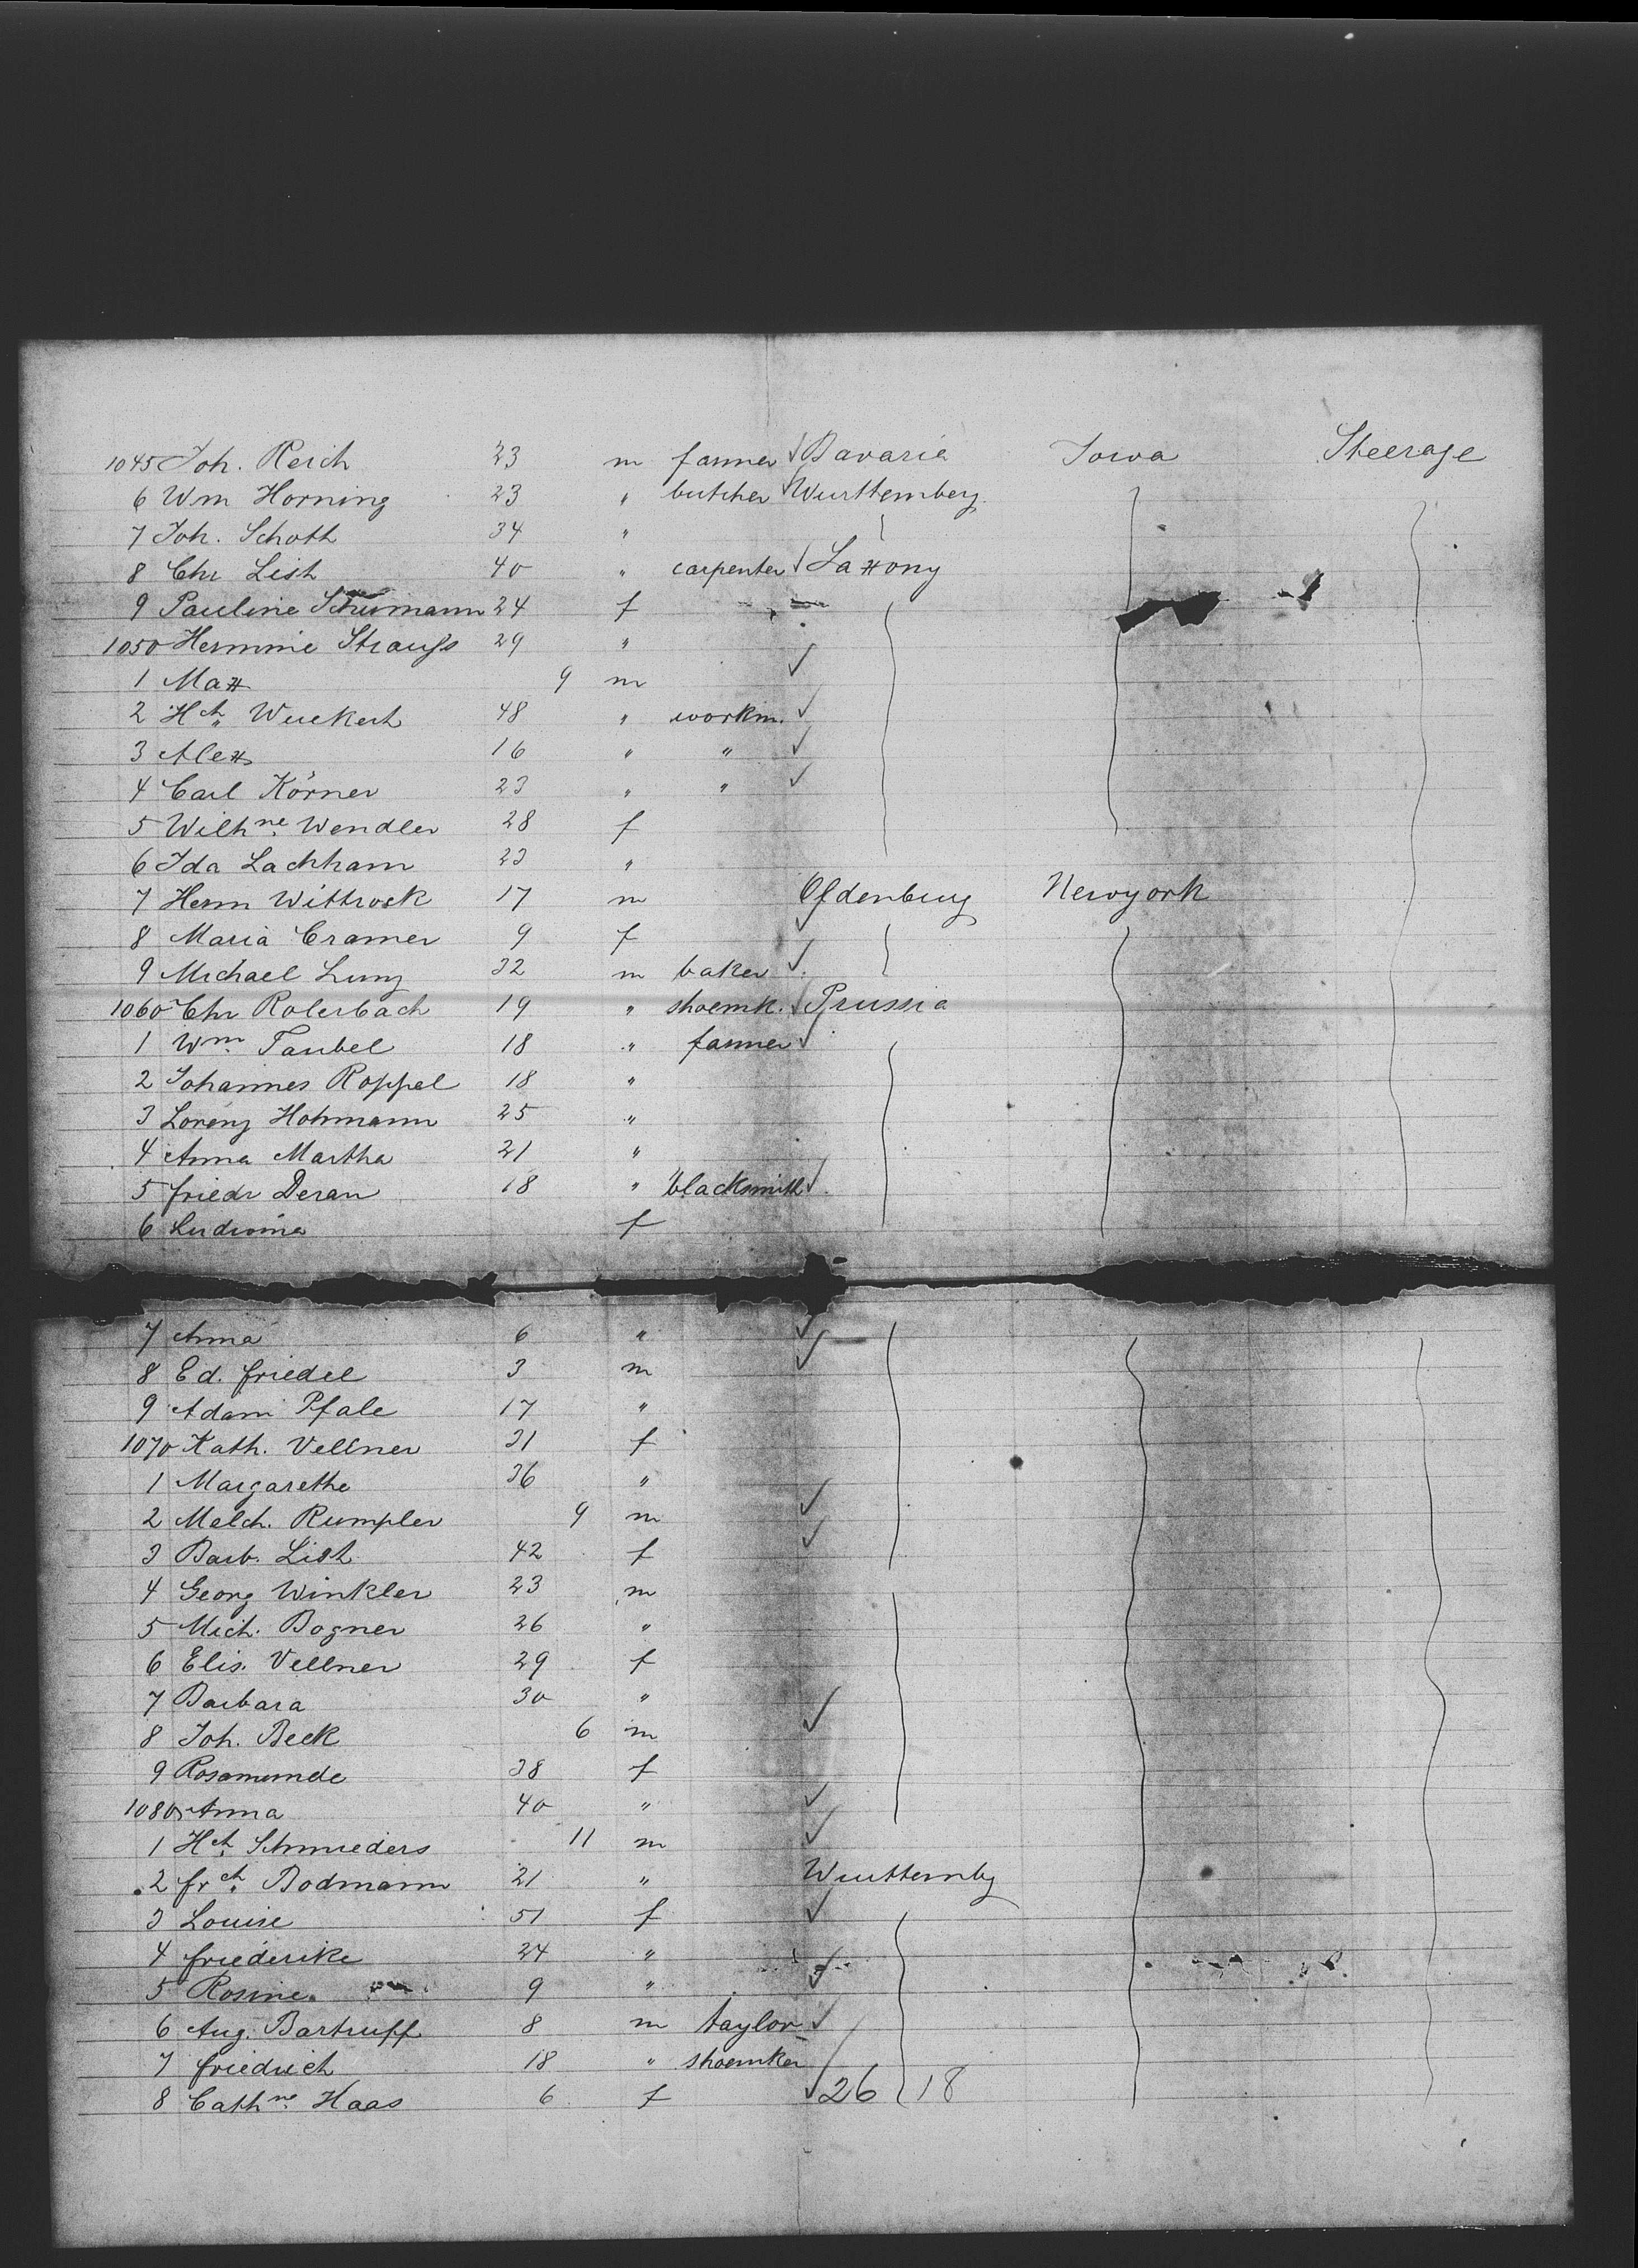 1045 Joh. Reich 23 m farmer Bavaria Iowa Steerage
6 Wm Horning 23 " butcher Wurttemberg
7 Joh. Schott 34 "
8 Chr List 40 " carpenter Saxony
9 Pauline Schumann 24 f
1050 Hermine Strauss 29 "
1 Max 9 m
2 Hch Wuckert 48 " workm.
3 Alex 16 " "
4 Carl Körner 23 " "
5 Wilhne Wendler 28 f
6 Ida Lachham 23 "
7 Herm Wittrock 17 m Oldenburg Newyork
8 Maria Cramer 9 f
9 Michael Lung 32 m baker
1060 Chr Rolerbach 19 " shoemk. Prussia
1 Wm Taubel 18 " farmer
2 Johannes Roppel 18 "
3 Lorenz Hohmann 25 "
4 Anna Martha 21 "
5 Friedr Deran 18 " blacksmith
6 Ludwina f
7 Anna 6 "
8 Ed. Friedel 3 m
9 Adam Pfale 17 "
1070 Kath. Vellner 31 f
1 Margarethe 36 "
2 Melch. Rumpler 9 m
3 Barb. List 42 f
4 Georg Winkler 23 m
5 Mich. Bogner 26 "
6 Elis. Vellner 29 f
7 Barbara 30 "
8 Joh. Beck 6 m
9 Rosamunde 38 f
1080 Anna 40 "
1 Hch Schmieders 11 m
2 Frch Bodmann 21 " Wurttembg
3 Louise 51 f
4 Friederike 24 "
5 Rosine 9 "
6 Aug. Bartruff 8 m taylor
7 Friedrich 18 " shoemker
8 Cathne Haas 6 f 26 18